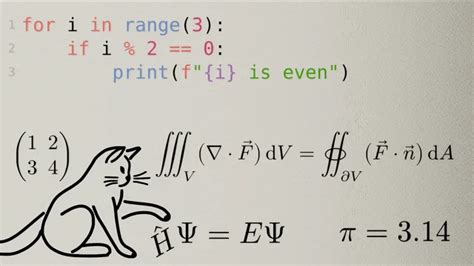 1 for i in range(3):
2     if i % 2 == 0:
3         print(f"{i} is even")
(1 2
3 4) ∭_V (∇ · F⃗) dV = ∯_∂V (F⃗ · n⃗) dA
ĤΨ = EΨ π = 3.14